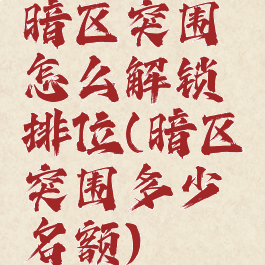 暗区突围
怎么解锁
排位(暗区
突围多少
名额)